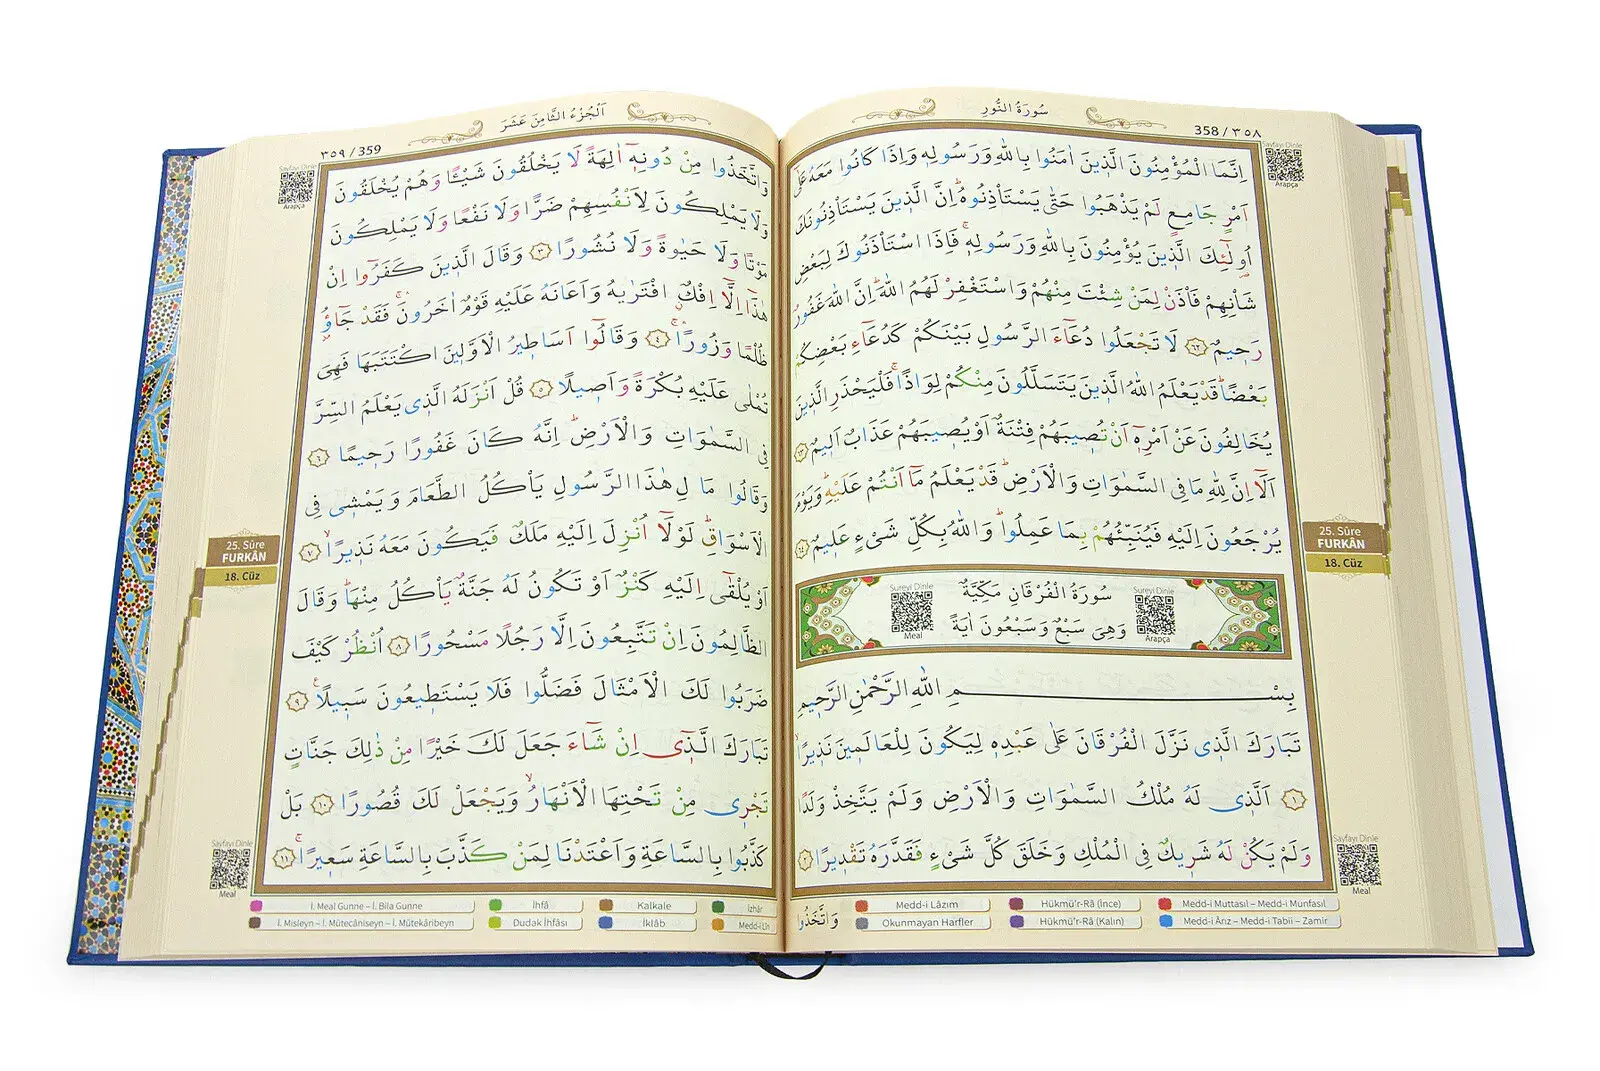 سُورَةُ النُّورِ
358 / ٣٥٨
Sayfayı Dinle
Arapça
اِنَّمَا الْمُؤْمِنُونَ الَّذ۪ينَ اٰمَنُوا بِاللّٰهِ وَرَسُولِه۪ وَاِذَا كَانُوا مَعَهُ عَلٰٓى
اَمْرٍ جَامِعٍ لَمْ يَذْهَبُوا حَتّٰى يَسْتَأْذِنُوهُۜ اِنَّ الَّذ۪ينَ يَسْتَأْذِنُونَكَ
اُو۬لٰٓئِكَ الَّذ۪ينَ يُؤْمِنُونَ بِاللّٰهِ وَرَسُولِه۪ۚ فَاِذَا اسْتَأْذَنُوكَ لِبَعْضِ
شَأْنِهِمْ فَأْذَنْ لِمَنْ شِئْتَ مِنْهُمْ وَاسْتَغْفِرْ لَهُمُ اللّٰهَۜ اِنَّ اللّٰهَ غَفُورٌ
رَح۪يمٌ ﴿٦٢﴾ لَا تَجْعَلُوا دُعَٓاءَ الرَّسُولِ بَيْنَكُمْ كَدُعَٓاءِ بَعْضِكُمْ
بَعْضًاۜ قَدْ يَعْلَمُ اللّٰهُ الَّذ۪ينَ يَتَسَلَّلُونَ مِنْكُمْ لِوَاذًاۚ فَلْيَحْذَرِ الَّذ۪ينَ
يُخَالِفُونَ عَنْ اَمْرِه۪ٓ اَنْ تُص۪يبَهُمْ فِتْنَةٌ اَوْ يُص۪يبَهُمْ عَذَابٌ اَل۪يمٌ ﴿٦٣﴾
اَلَٓا اِنَّ لِلّٰهِ مَا فِي السَّمٰوَاتِ وَالْاَرْضِۜ قَدْ يَعْلَمُ مَٓا اَنْتُمْ عَلَيْهِۜ وَيَوْمَ
يُرْجَعُونَ اِلَيْهِ فَيُنَبِّئُهُمْ بِمَا عَمِلُواۜ وَاللّٰهُ بِكُلِّ شَيْءٍ عَل۪يمٌ ﴿٦٤﴾
25. Sûre
FURKÂN
18. Cüz
سُورَةُ الْفُرْقَانِ مَكِّيَّةٌ
وَهِيَ سَبْعٌ وَسَبْعُونَ اٰيَةً
Sureyi Dinle
Arapça
Sureyi Dinle
Meal
بِسْمِ اللّٰهِ الرَّحْمٰنِ الرَّح۪يمِ
تَبَارَكَ الَّذ۪ي نَزَّلَ الْفُرْقَانَ عَلٰى عَبْدِه۪ لِيَكُونَ لِلْعَالَم۪ينَ نَذ۪يرًاۙ
﴿١﴾ اَلَّذ۪ي لَهُ مُلْكُ السَّمٰوَاتِ وَالْاَرْضِ وَلَمْ يَتَّخِذْ وَلَدًا
وَلَمْ يَكُنْ لَهُ شَر۪يكٌ فِي الْمُلْكِ وَخَلَقَ كُلَّ شَيْءٍ فَقَدَّرَهُ تَقْد۪يرًا ﴿٢﴾
Sayfayı Dinle
Meal
Medd-i Lâzım
Hükmü'r-Râ (İnce)
Medd-i Muttasıl – Medd-i Munfasıl
وَاتَّخَذُوا
Okunmayan Harfler
Hükmü'r-Râ (Kalın)
Medd-i Ârız – Medd-i Tabiî – Zamir
اَلْجُزْءُ الثَّامِنَ عَشَرَ
٣٥٩ / 359
Sayfayı Dinle
Arapça
وَاتَّخَذُوا مِنْ دُونِه۪ٓ اٰلِهَةً لَا يَخْلُقُونَ شَيْـًٔا وَهُمْ يُخْلَقُونَ
وَلَا يَمْلِكُونَ لِاَنْفُسِهِمْ ضَرًّا وَلَا نَفْعًا وَلَا يَمْلِكُونَ
مَوْتًا وَلَا حَيٰوةً وَلَا نُشُورًا ﴿٣﴾ وَقَالَ الَّذ۪ينَ كَفَرُٓوا اِنْ
هٰذَٓا اِلَّٓا اِفْكٌۨ افْتَرٰيهُ وَاَعَانَهُ عَلَيْهِ قَوْمٌ اٰخَرُونَۚ فَقَدْ جَٓاؤُ۫
ظُلْمًا وَزُورًاۚ ﴿٤﴾ وَقَالُٓوا اَسَاط۪يرُ الْاَوَّل۪ينَ اكْتَتَبَهَا فَهِيَ
تُمْلٰى عَلَيْهِ بُكْرَةً وَاَص۪يلًا ﴿٥﴾ قُلْ اَنْزَلَهُ الَّذ۪ي يَعْلَمُ السِّرَّ
فِي السَّمٰوَاتِ وَالْاَرْضِۜ اِنَّهُ كَانَ غَفُورًا رَح۪يمًا ﴿٦﴾
وَقَالُوا مَا لِ هٰذَا الرَّسُولِ يَأْكُلُ الطَّعَامَ وَيَمْش۪ي فِي
الْاَسْوَاقِۜ لَوْلَٓا اُنْزِلَ اِلَيْهِ مَلَكٌ فَيَكُونَ مَعَهُ نَذ۪يرًاۙ ﴿٧﴾
اَوْ يُلْقٰٓى اِلَيْهِ كَنْزٌ اَوْ تَكُونُ لَهُ جَنَّةٌ يَأْكُلُ مِنْهَاۜ وَقَالَ
الظَّالِمُونَ اِنْ تَتَّبِعُونَ اِلَّا رَجُلًا مَسْحُورًا ﴿٨﴾ اُنْظُرْ كَيْفَ
ضَرَبُوا لَكَ الْاَمْثَالَ فَضَلُّوا فَلَا يَسْتَط۪يعُونَ سَب۪يلًا۟ ﴿٩﴾
تَبَارَكَ الَّذ۪ٓي اِنْ شَٓاءَ جَعَلَ لَكَ خَيْرًا مِنْ ذٰلِكَ جَنَّاتٍ
تَجْر۪ي مِنْ تَحْتِهَا الْاَنْهَارُۙ وَيَجْعَلْ لَكَ قُصُورًا ﴿١٠﴾ بَلْ
كَذَّبُوا بِالسَّاعَةِ وَاَعْتَدْنَا لِمَنْ كَذَّبَ بِالسَّاعَةِ سَع۪يرًاۚ ﴿١١﴾
25. Sûre
FURKÂN
18. Cüz
Sayfayı Dinle
Meal
İ. Meal Gunne – İ. Bila Gunne
İhfâ
Kalkale
İzhâr
İ. Misleyn – İ. Mütecâniseyn – İ. Mütekâribeyn
Dudak İhfâsı
İklâb
Medd-i Lîn